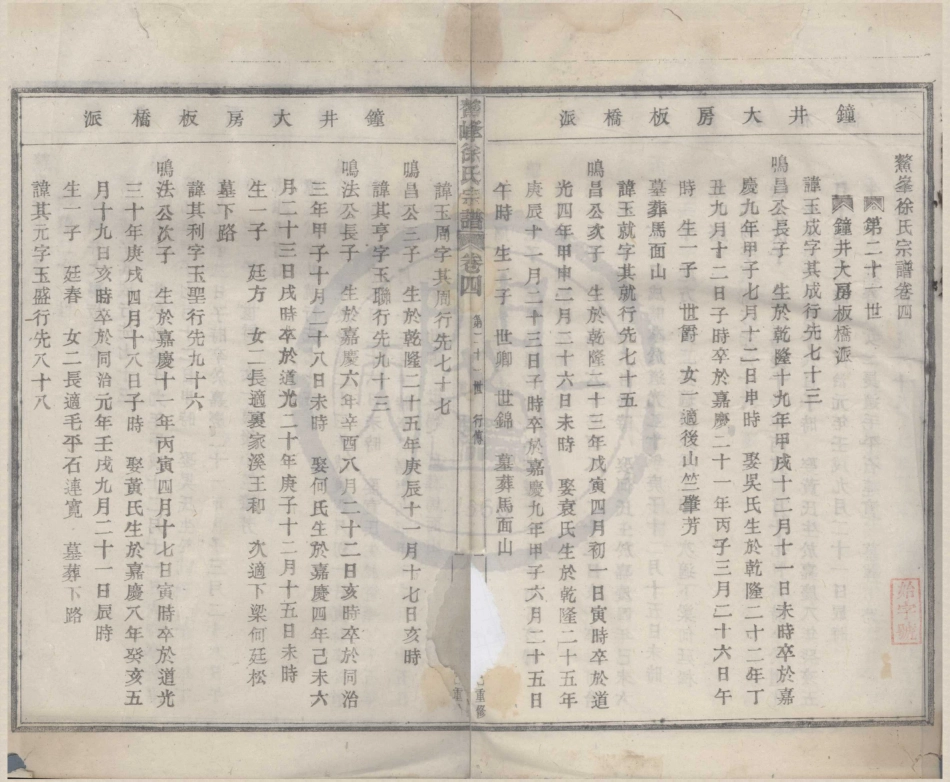 鐘井大房板橋派
鰲峯徐氏宗譜卷四
第二十一世
鐘井大房板橋派
諱玉成字其成行先七十三
鳴昌公長子　生於乾隆十九年甲戌十二月十一日未時卒於嘉
慶九年甲子七月十二日申時　娶吳氏生於乾隆二十二年丁
丑九月十二日子時卒於嘉慶二十一年丙子三月二十六日午
時　生一子　世爵　女一適後山竺肇芳
墓葬馬面山
諱玉就字其就行先七十五
鳴昌公次子　生於乾隆二十三年戊寅四月初一日寅時卒於道
光四年甲申二月二十六日未時　娶袁氏生於乾隆二十五年
庚辰十二月二十三日子時卒於嘉慶九年甲子六月二十五日
午時　生二子　世卿　世錦　墓葬馬面山
峰徐氏宗譜　卷四　第二十一世　行傳　重修
鐘井大房板橋派
諱玉周字其周行先七十七
鳴昌公三子　生於乾隆二十五年庚辰十一月十七日亥時
諱其亨字玉聯行先九十三
鳴法公長子　生於嘉慶六年辛酉八月二十二日亥時卒於同治
三年甲子十月二十八日未時　娶何氏生於嘉慶四年己未六
月二十三日戌時卒於道光二十年庚子十二月十五日未時
生一子　廷方　女二長適裏家溪王和　次適下梁何廷松
墓下路
諱其利字玉聖行先九十六
鳴法公次子　生於嘉慶十一年丙寅四月十七日寅時卒於道光
三十年庚戌四月十八日子時　娶黃氏生於嘉慶八年癸亥五
月十九日亥時卒於同治元年壬戌九月二十一日辰時
生一子　廷春　女二長適毛平石連寬　墓葬下路
諱其元字玉盛行先八十八
始字號